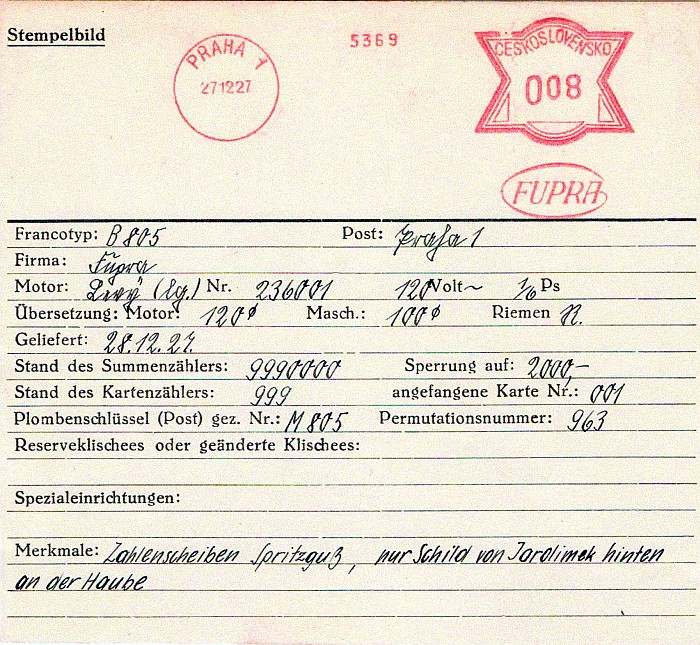 Stempelbild
PRAHA 1
27 12 27
5369
ČESKOSLOVENSKO
008
FUPRA
Francotyp: B 805 Post: Praha 1
Firma: Fupra
Motor: Levý (Lg.) Nr. 236001 120 Volt~ 1/6 Ps
Übersetzung: Motor: 120⌀ Masch.: 100⌀ Riemen R.
Geliefert: 28.12.27.
Stand des Summenzählers: 9990000 Sperrung auf: 2000,-
Stand des Kartenzählers: 999 angefangene Karte Nr.: 001
Plombenschlüssel (Post) gez. Nr.: M 805 Permutationsnummer: 963
Reserveklischees oder geänderte Klischees:
Spezialeinrichtungen:
Merkmale: Zahlenscheiben Spritzguß, nur Schild von Jarolimek hinten
an der Haube